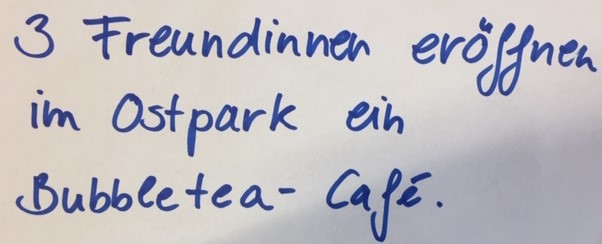 3 Freundinnen eröffnen
im Ostpark ein
Bubbletea- Café.